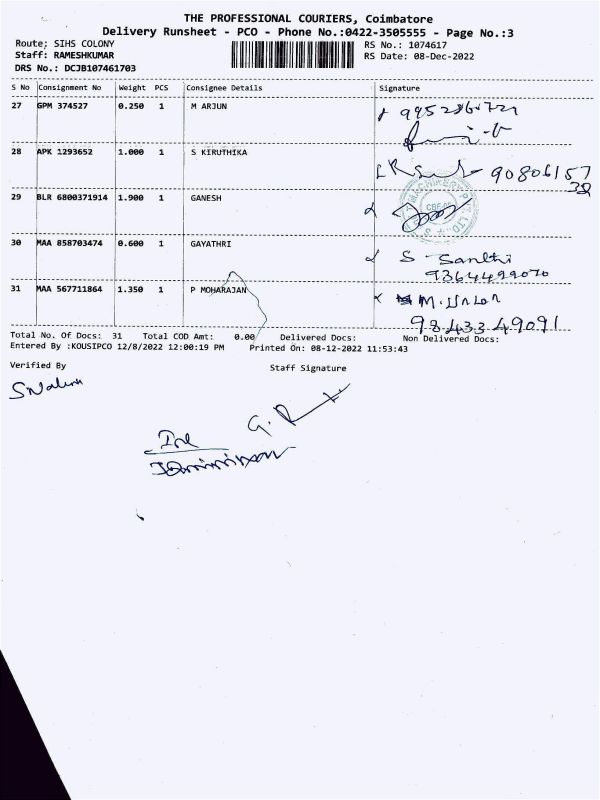 THE PROFESSIONAL COURIERS, Coimbatore
Delivery Runsheet - PCO - Phone No.:0422-3505555 - Page No.:3
Route; SIHS COLONY RS No.: 1074617
Staff: RAMESHKUMAR RS Date: 08-Dec-2022
DRS No.: DCJB107461703
S No Consignment No Weight PCS Consignee Details Signature
27 GPM 374527 0.250 1 M ARJUN
28 APK 1293652 1.000 1 S KIRUTHIKA
90806157
32
29 BLR 6800371914 1.900 1 GANESH
30 MAA 858703474 0.600 1 GAYATHRI S Santhi
9364499070
31 MAA 567711864 1.350 1 P MOHARAJAN
9843349091
Total No. Of Docs: 31 Total COD Amt: 0.00 Delivered Docs: Non Delivered Docs:
Entered By :KOUSIPCO 12/8/2022 12:00:19 PM Printed On: 08-12-2022 11:53:43
Verified By Staff Signature